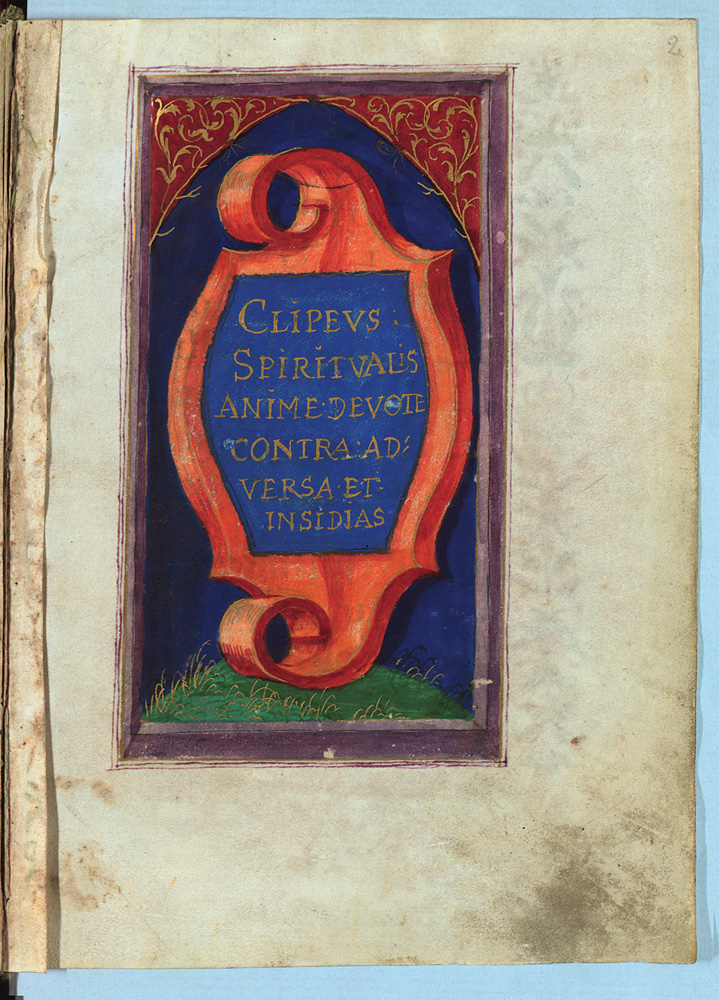 2
CLIPEVS
SPIRITVALIS
ANIME·DEVOTE
CONTRA:AD:
VERSA·ET·
INSIDIAS